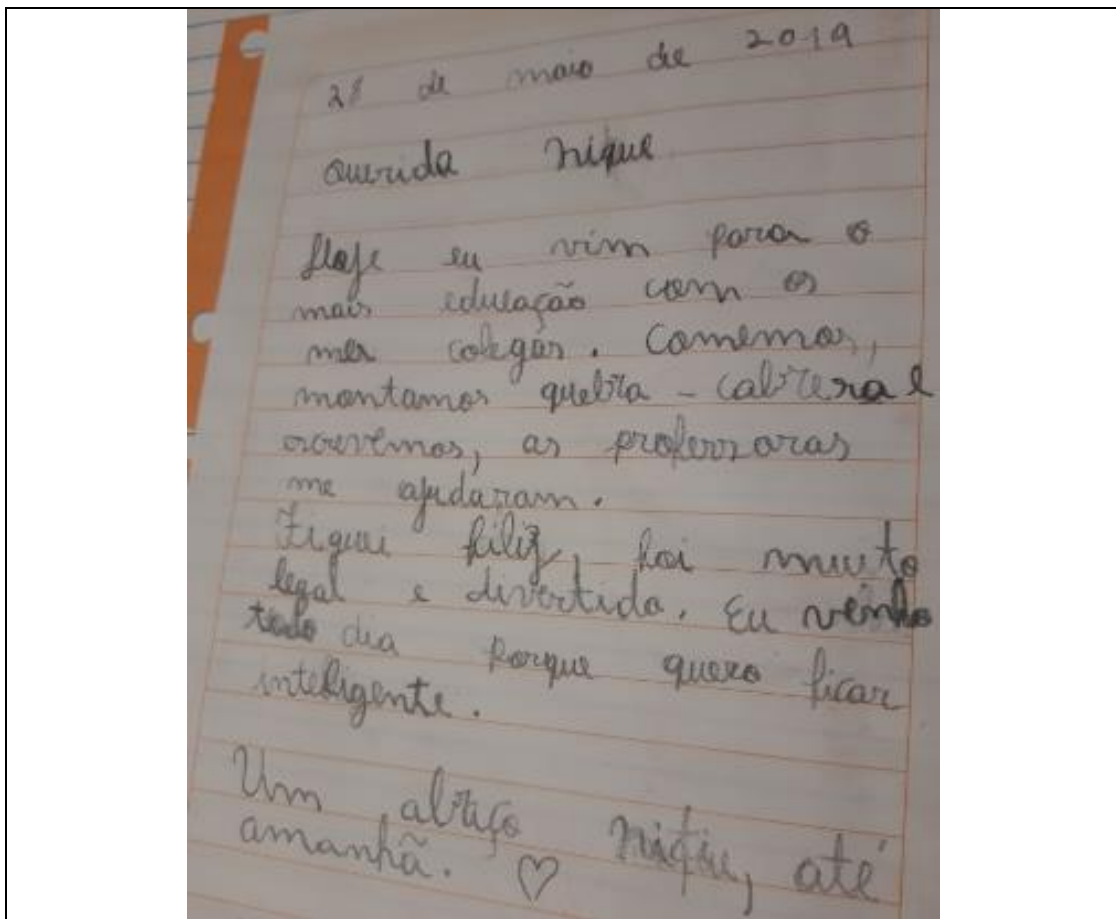 28 de maio de 2019
Querida Nique
Hoje eu vim para o
mais educação com os
meus colegas. Comemos,
montamos quebra-cabeça e
escrevemos, as professoras
me ajudaram.
Fiquei filiz, foi muito
legal e divertido. Eu venho
todo dia porque quero ficar
inteligente.
Um abraço Nique, até
amanhã. ♡